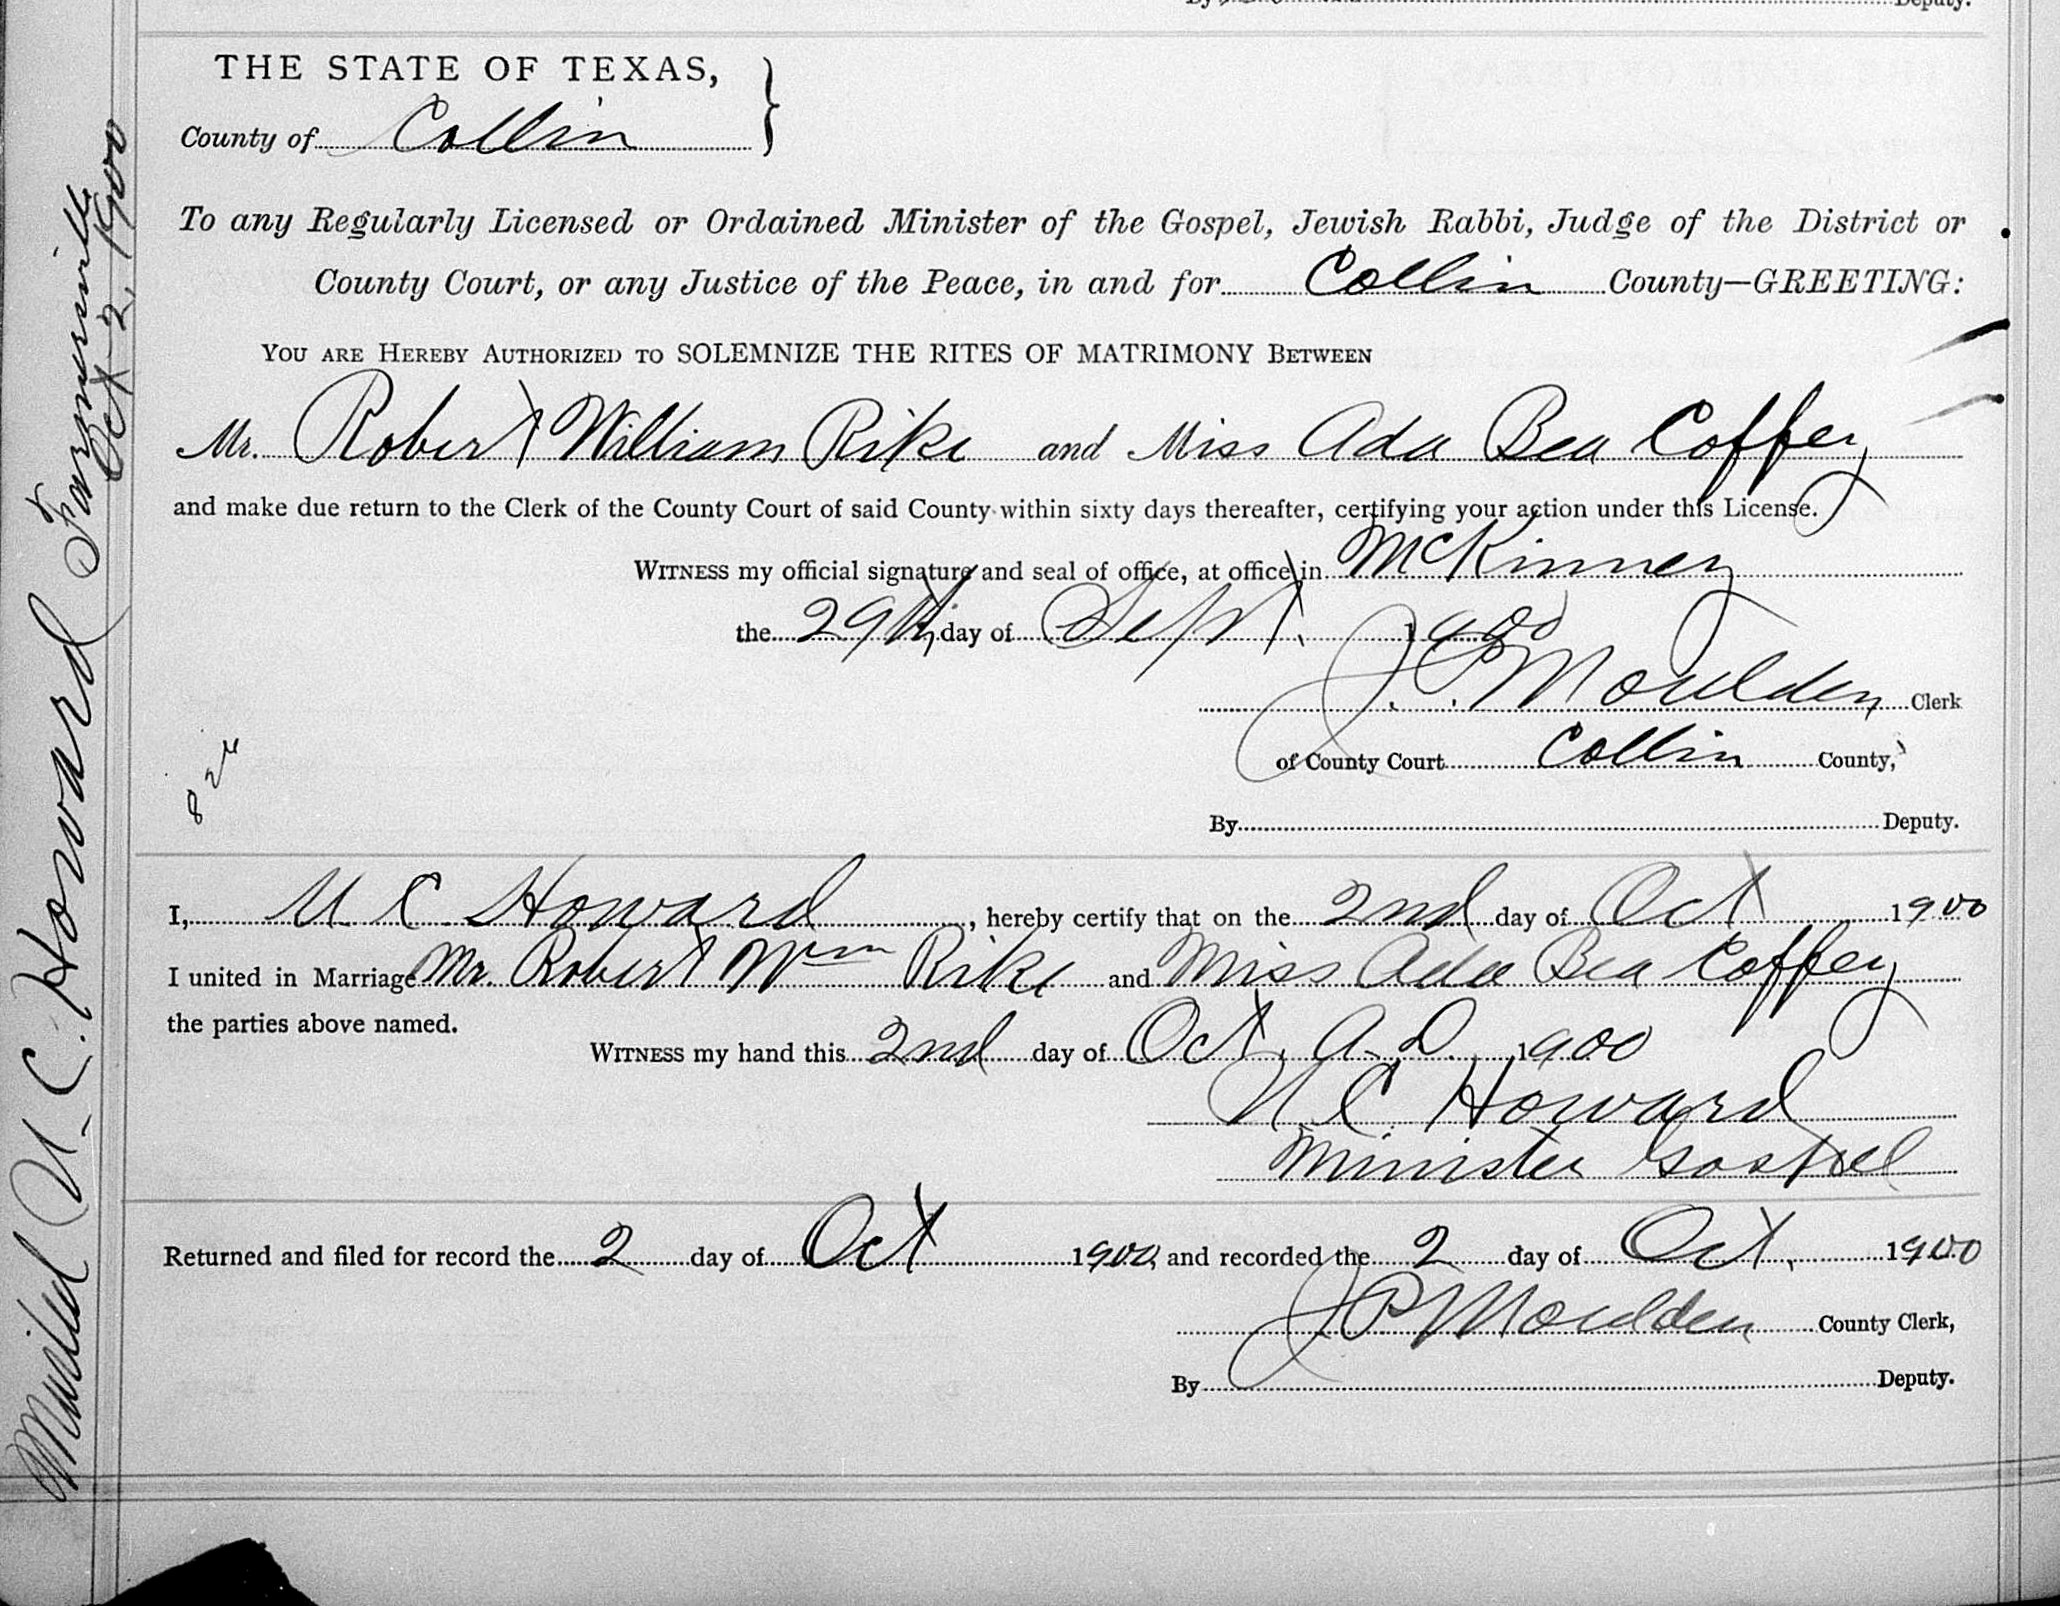 Deputy.
THE STATE OF TEXAS,
County of Collin
To any Regularly Licensed or Ordained Minister of the Gospel, Jewish Rabbi, Judge of the District or
County Court, or any Justice of the Peace, in and for Collin County—GREETING:
YOU ARE HEREBY AUTHORIZED TO SOLEMNIZE THE RITES OF MATRIMONY BETWEEN
Mr. Robert William Rike and Miss Ada Bea Coffey
and make due return to the Clerk of the County Court of said County within sixty days thereafter, certifying your action under this License.
WITNESS my official signature and seal of office, at office in McKinney
the 29th, day of Sept. 1900
J. P. Moulden Clerk
of County Court Collin County,
By Deputy.
I, U C. Howard, hereby certify that on the 2nd day of Oct 1900
I united in Marriage Mr. Robert Wm Rike and Miss Ada Bea Coffey
the parties above named.
WITNESS my hand this 2nd day of Oct. A. D. 1900
U C Howard
Minister Gospel
Returned and filed for record the 2 day of Oct 1900, and recorded the 2 day of Oct. 1900
J P Moulden County Clerk,
By Deputy.
Mailed U. C. Howard Farmersville
Oct 2, 1900